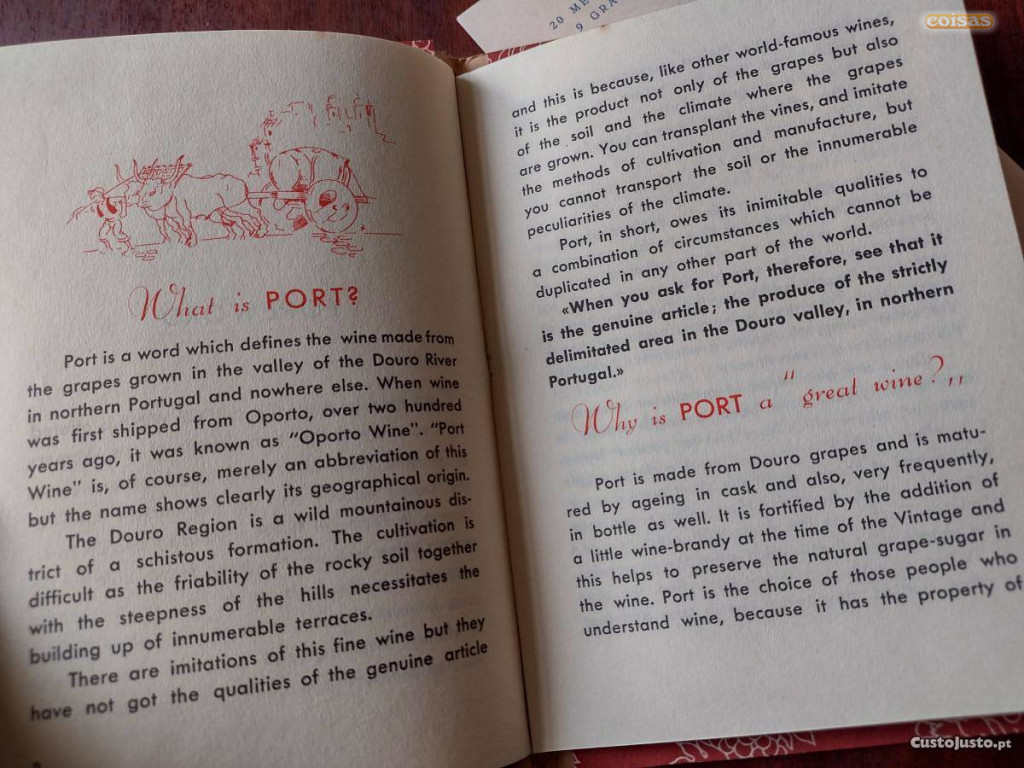 20 ME
9 GRA
coisas
What is PORT?
Port is a word which defines the wine made from
the grapes grown in the valley of the Douro River
in northern Portugal and nowhere else. When wine
was first shipped from Oporto, over two hundred
years ago, it was known as "Oporto Wine". "Port
Wine" is, of course, merely an abbreviation of this
but the name shows clearly its geographical origin.
The Douro Region is a wild mountainous dis-
trict of a schistous formation. The cultivation is
difficult as the friability of the rocky soil together
with the steepness of the hills necessitates the
building up of innumerable terraces.
There are imitations of this fine wine but they
have not got the qualities of the genuine article
and this is because, like other world-famous wines,
it is the product not only of the grapes but also
of the soil and the climate where the grapes
are grown. You can transplant the vines, and imitate
the methods of cultivation and manufacture, but
you cannot transport the soil or the innumerable
peculiarities of the climate.
Port, in short, owes its inimitable qualities to
a combination of circumstances which cannot be
duplicated in any other part of the world.
«When you ask for Port, therefore, see that it
is the genuine article; the produce of the strictly
delimitated area in the Douro valley, in northern
Portugal.»
Why is PORT a "great wine?,,
Port is made from Douro grapes and is matu-
red by ageing in cask and also, very frequently,
in bottle as well. It is fortified by the addition of
a little wine-brandy at the time of the Vintage and
this helps to preserve the natural grape-sugar in
the wine. Port is the choice of those people who
understand wine, because it has the property of
CustoJusto.pt